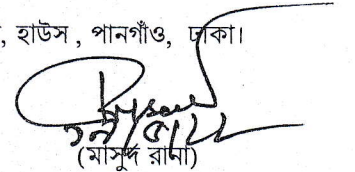 , হাউস , পানগাঁও, ঢাকা।
(মাসুদ রানা)